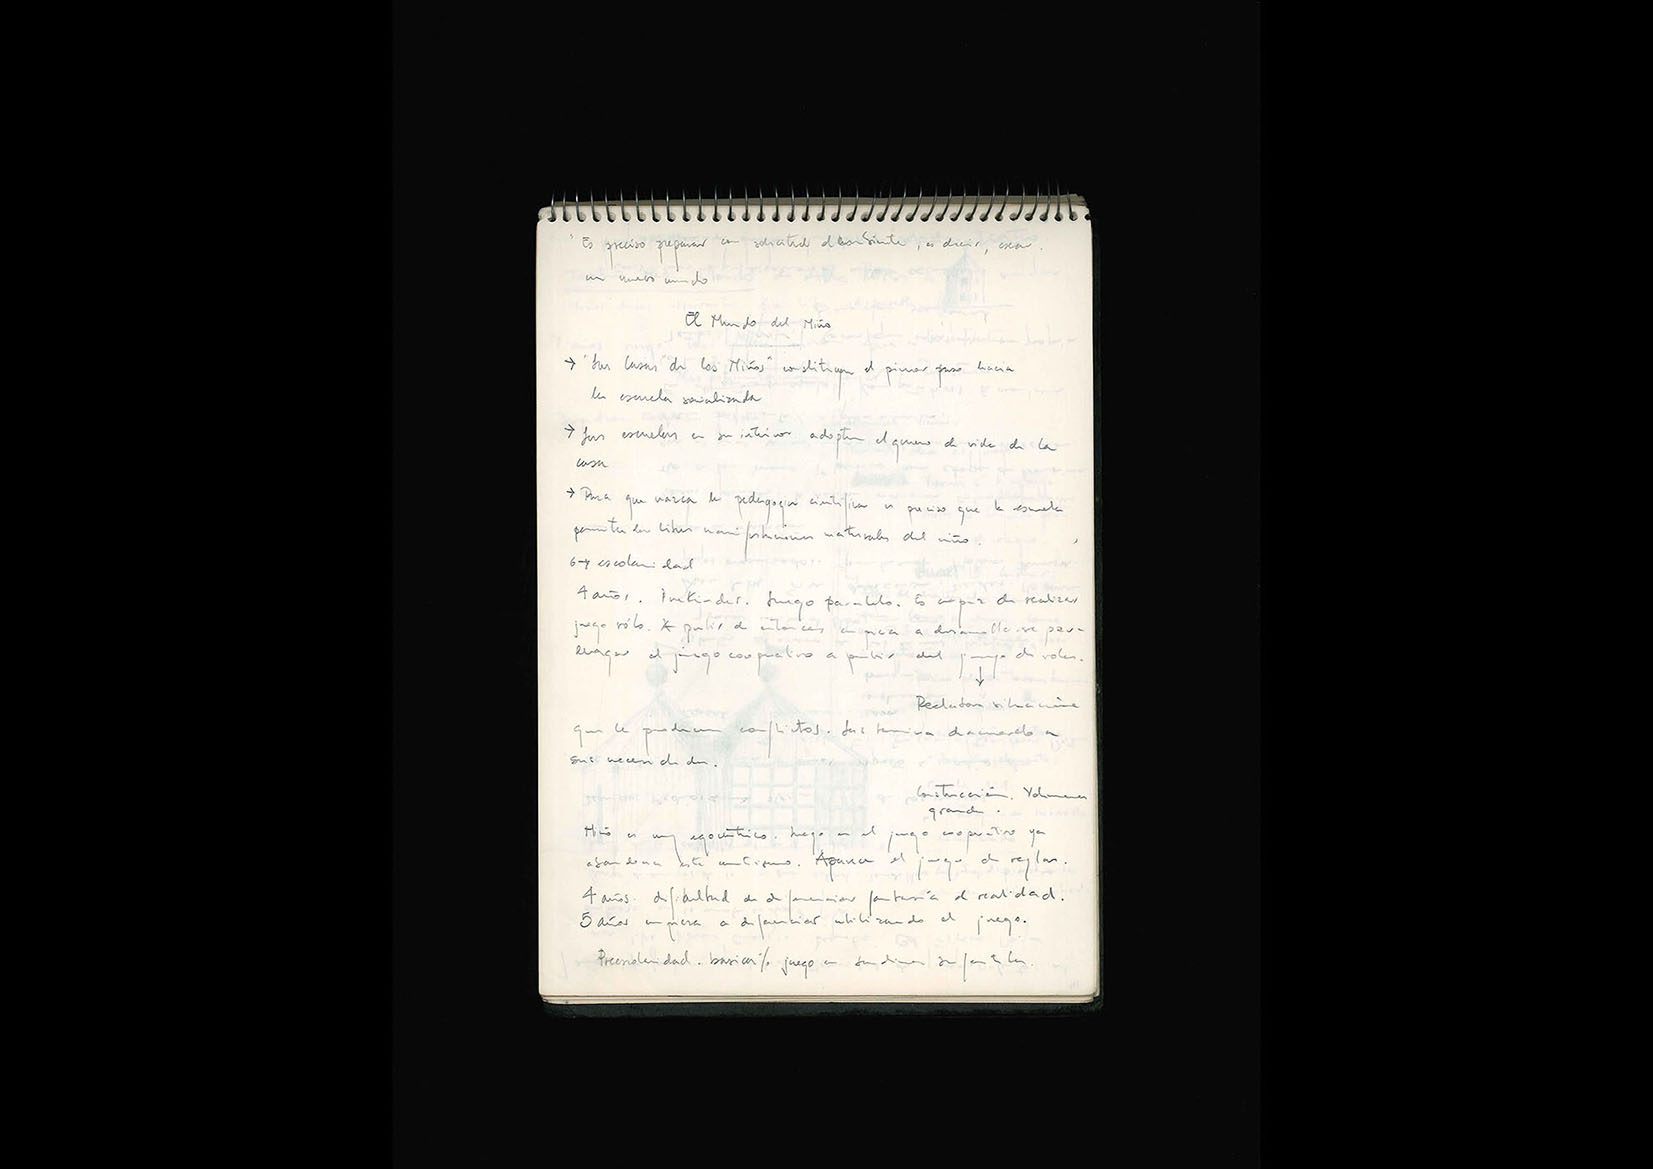 "Es preciso preparar con solicitud el ambiente, es decir, crear
un nuevo mundo
El Mundo del Niño
→ "Las Casas de los Niños" constituyen el primer paso hacia
la escuela socializada
→ Las escuelas en su interior adoptan el genero de vida de la
casa
→ Para que nazca la pedagogía científica es preciso que la escuela
permita las libres manifestaciones naturales del niño.
6-7 escolaridad
4 años. Prekinder. Juego paralelo. Es capaz de realizar
juego sólo. A partir de entonces empieza a desarrollarse para
llegar al juego cooperativo a partir del juego de roles.
↓
situaciones
que le producen conflictos. de acuerdo a
sus necesidades.
Construcción. Volumenes
grandes.
Niño es muy egocéntrico. Luego en el juego cooperativo ya
abandona este . Aparece el juego de reglas.
4 años. dificultad de diferenciar fantasía de realidad.
5 años empieza a diferenciar utilizando el juego.
Preescolaridad. básica% juego en Jardines Infantiles.